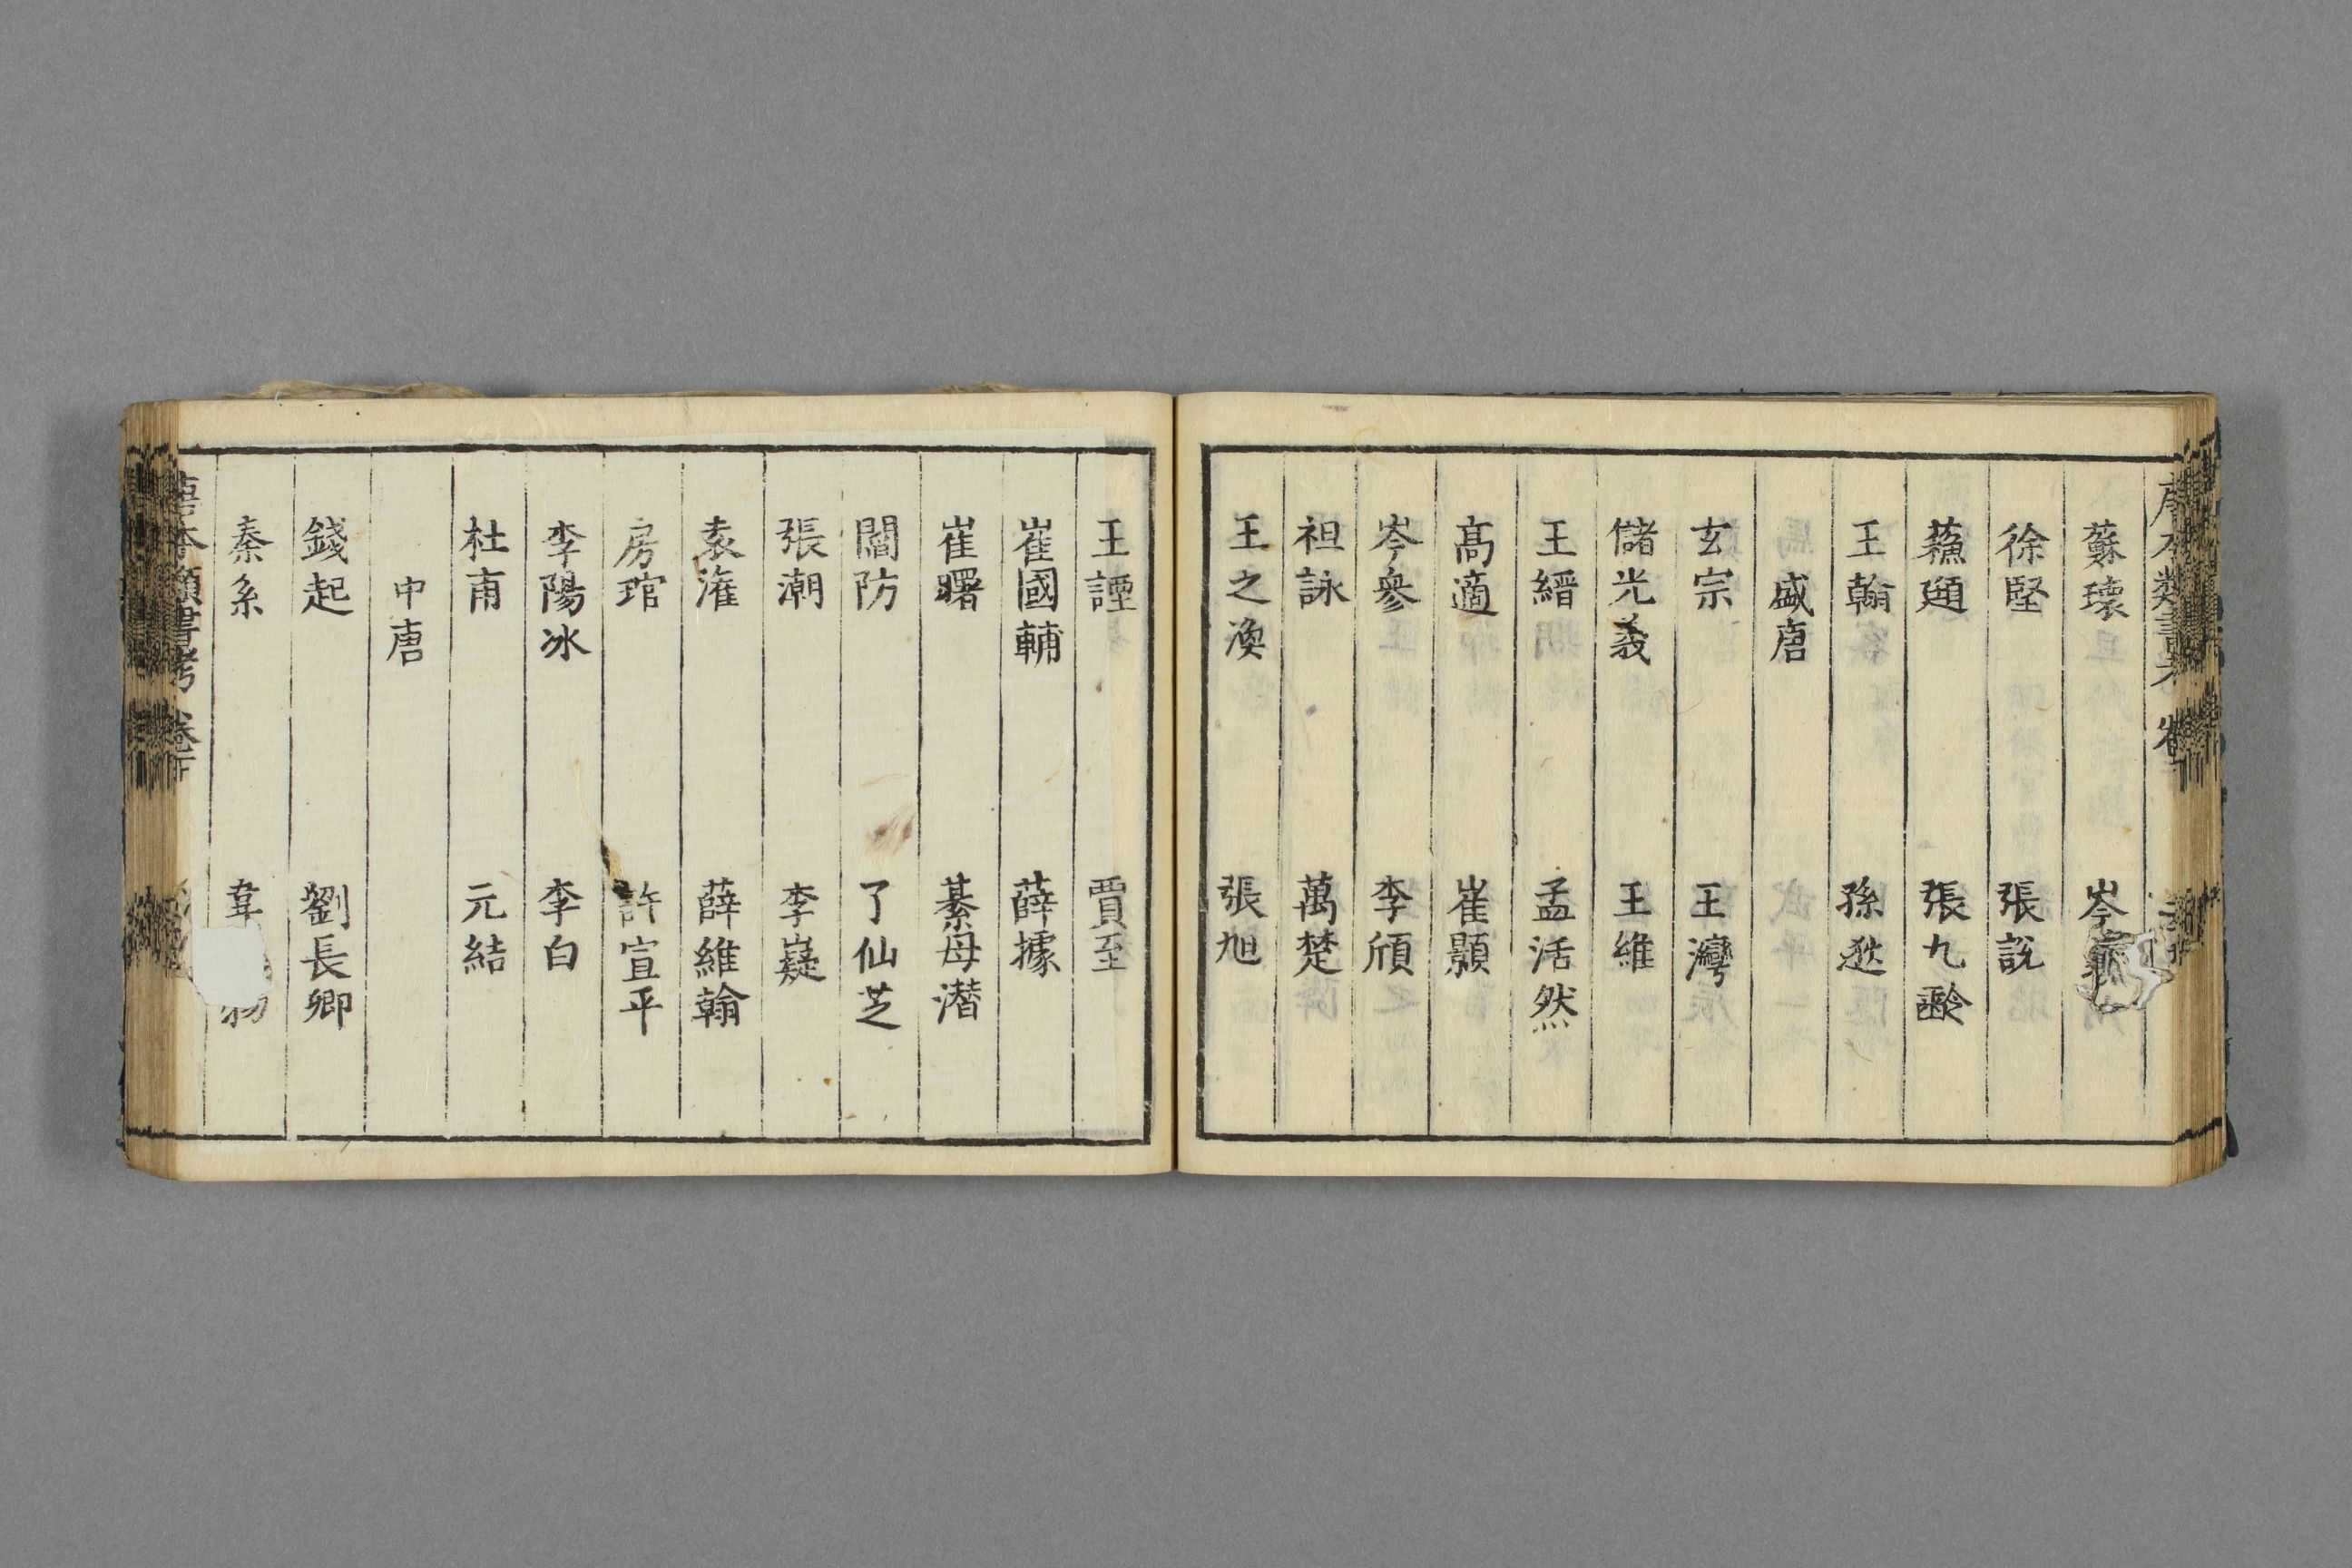 蘇瓌 岑羲
徐堅 張説
蘓頲 張九齡
王翰 孫逖
盛唐
玄宗 王灣
儲光羲 王維
王縉 孟活然
髙適 崔顥
岑參 李頎
祖詠 萬楚
王之渙 張旭
王諲 賈至
崔國輔 薛據
崔曙 綦母潛
閻防 了仙芝
張潮 李嶷
袁漼 薛維翰
房琯 許宣平
李陽冰 李白
杜甫 元結
中唐
錢起 劉長卿
秦系 韋 物
唐本類書考 卷下